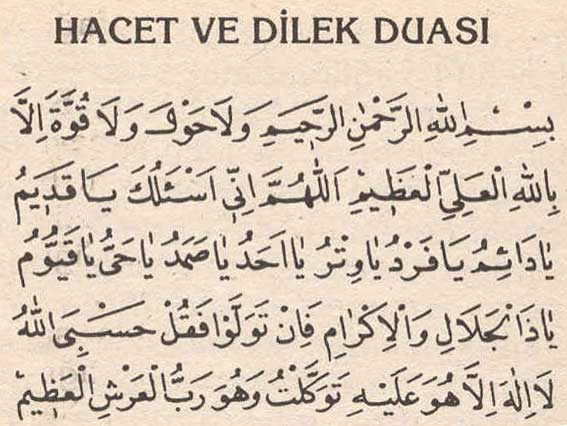 HACET VE DİLEK DUASI
بِسْمِ اللهِ الرَّحْمٰنِ الرَّحِيمِ وَلَا حَوْلَ وَلَا قُوَّةَ اِلَّا
بِاللهِ الْعَلِيِّ الْعَظِيمِ اَللّٰهُمَّ اِنِّي اَسْئَلُكَ يَا قَدِيمُ
يَا دَائِمُ يَا فَرْدُ يَا وِتْرُ يَا اَحَدُ يَا صَمَدُ يَا حَيُّ يَا قَيُّومُ
يَا ذَا الْجَلَالِ وَالْاِكْرَامِ فَاِنْ تَوَلَّوْا فَقُلْ حَسْبِيَ اللهُ
لَا اِلٰهَ اِلَّا هُوَ عَلَيْهِ تَوَكَّلْتُ وَهُوَ رَبُّ الْعَرْشِ الْعَظِيمِ